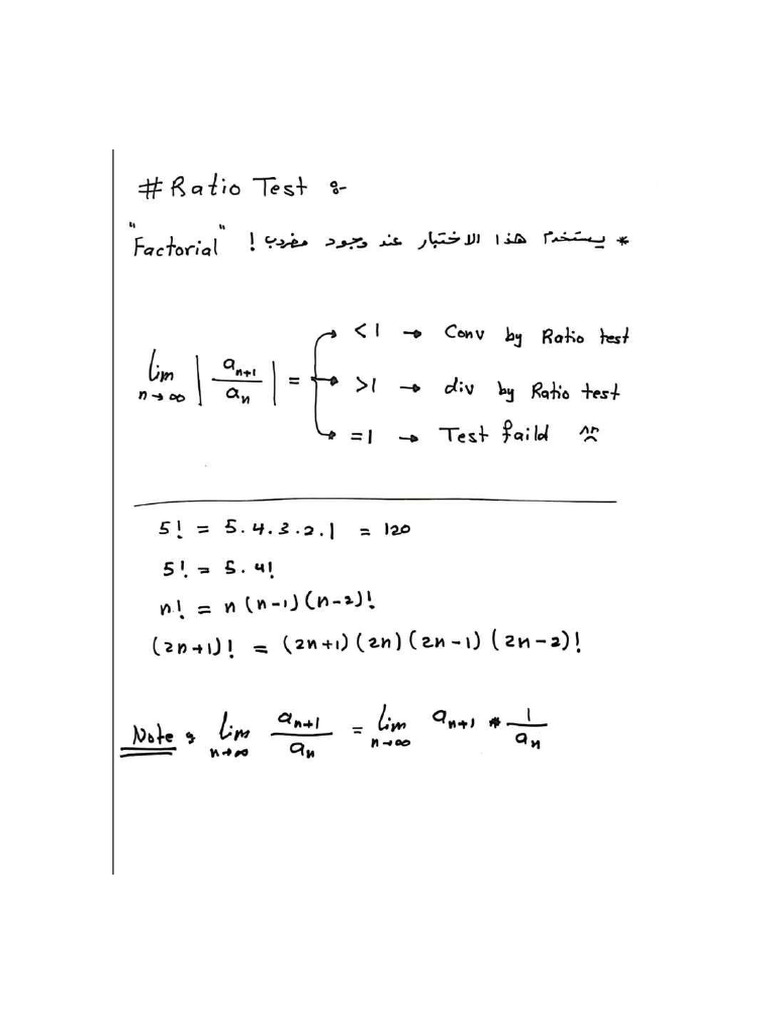 # Ratio Test :-
* يستخدم هذا الاختبار عند وجود مضروب ! "Factorial"
lim n→∞ | a_{n+1} / a_n | =
< 1 → Conv by Ratio test
> 1 → div by Ratio test
= 1 → Test faild
5! = 5.4.3.2.1 = 120
5! = 5.4!
n! = n(n-1)(n-2)!
(2n+1)! = (2n+1)(2n)(2n-1)(2n-2)!
Note : lim n→∞ a_{n+1} / a_n = lim n→∞ a_{n+1} * 1 / a_n